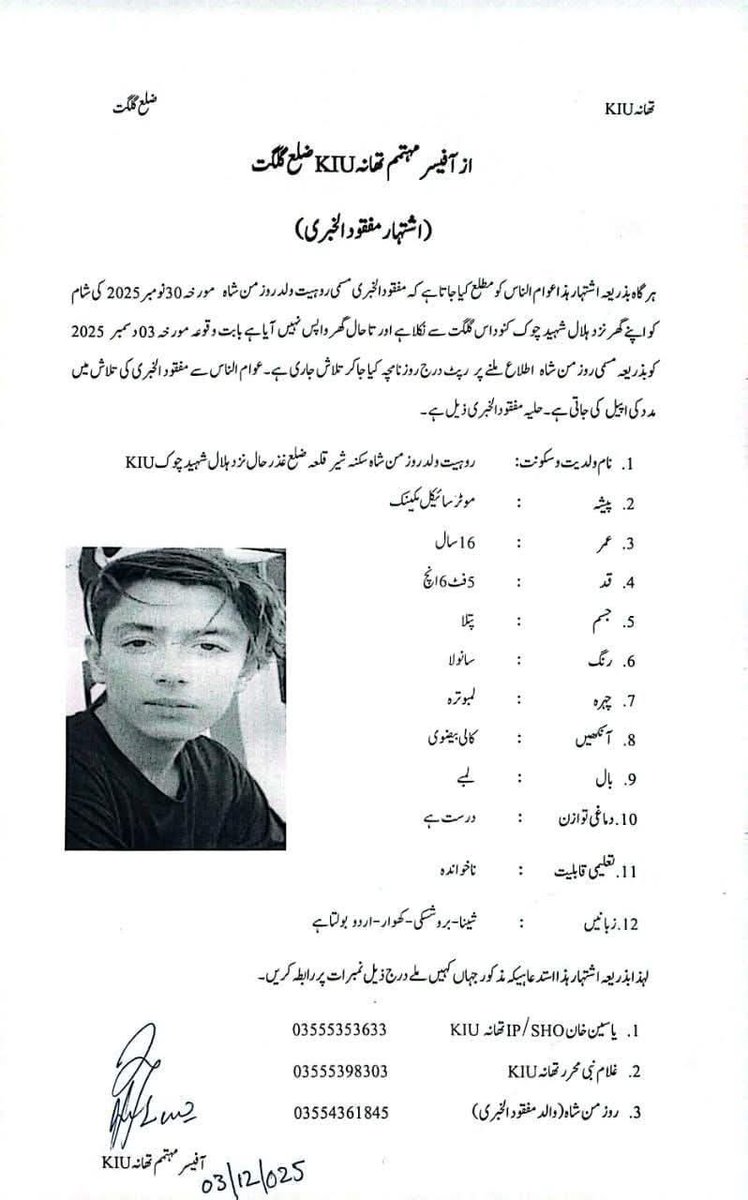 تھانہ KIU
ضلع گلگت
از آفیسر مہتمم تھانہ KIU ضلع گلگت
(اشتہار مفقود الخبری)
ہر گاہ بذریعہ اشتہار ہذا عوام الناس کو مطلع کیا جاتا ہے کہ مفقود الخبری مسمی روہیت ولد روز من شاہ مورخہ 30 نومبر 2025 کی شام
کو اپنے گھر نزد ہلال شہید چوک کنوداس گلگت سے نکلا ہے اور تا حال گھر واپس نہیں آیا ہے بابت وقوعہ مورخہ 03 دسمبر 2025
کو بذریعہ مسمی روز من شاہ اطلاع ملنے پر رپٹ درج روزنامچہ کیا جا کر تلاش جاری ہے۔ عوام الناس سے مفقود الخبری کی تلاش میں
مدد کی اپیل کی جاتی ہے۔ حلیہ مفقود الخبری ذیل ہے۔
1. نام ولدیت و سکونت: روہیت ولد روز من شاہ سکنہ شیر قلعہ ضلع غذر حال نزد ہلال شہید چوک KIU
2. پیشہ : موٹر سائیکل مکینک
3. عمر : 16 سال
4. قد : 5 فٹ 6 انچ
5. جسم : پتلا
6. رنگ : سانولا
7. چہرہ : لمبوترہ
8. آنکھیں : کالی بیضوی
9. بال : لمبے
10. دماغی توازن : درست ہے
11. تعلیمی قابلیت : ناخواندہ
12. زبانیں : شینا-بروشسکی-کھوار-اردو بولتا ہے
لہذا بذریعہ اشتہار ہذا استدعا ہیکہ مذکور جہاں کہیں ملے درج ذیل نمبرات پر رابطہ کریں۔
1. یاسین خان IP/SHO تھانہ KIU 03555353633
2. غلام نبی محرر تھانہ KIU 03555398303
3. روز من شاہ (والد مفقود الخبری) 03554361845
آفیسر مہتمم تھانہ KIU
03/12/025